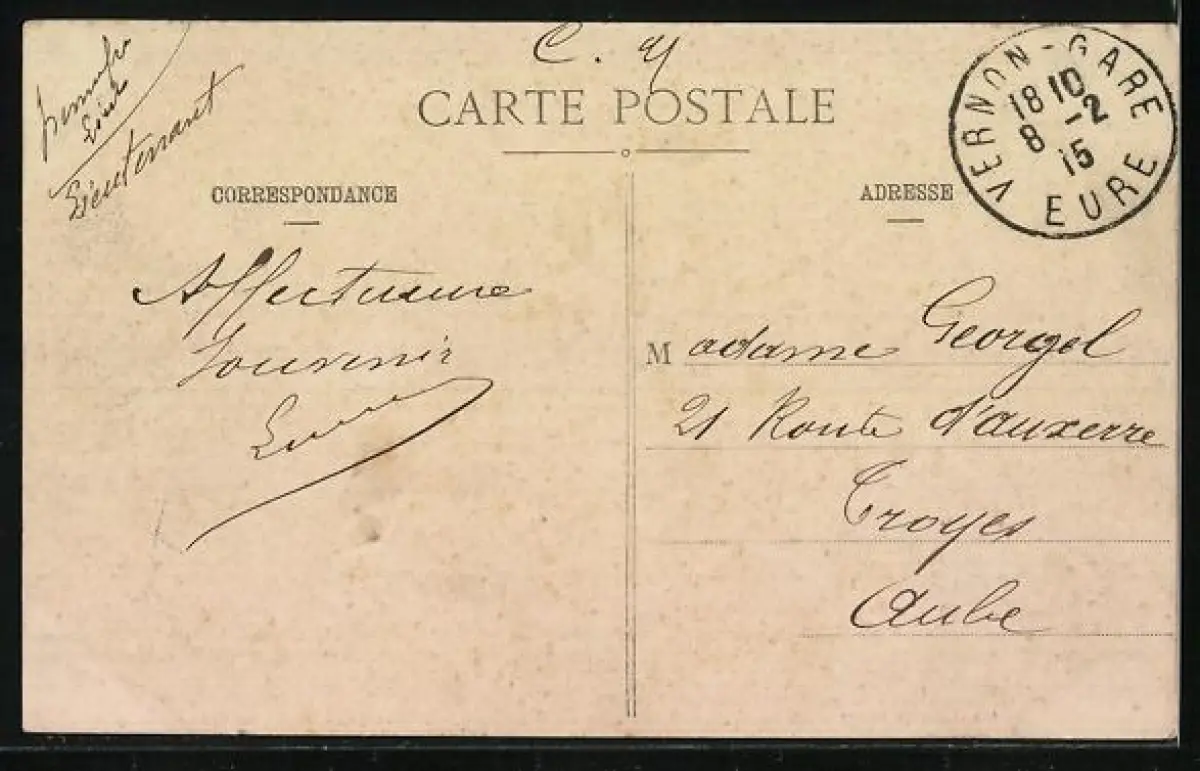 C. M
CARTE POSTALE
Lieutenant
CORRESPONDANCE
Affectueux
Souvenir
ADRESSE
VERNON-GARE
18 10
8 -2
15
EURE
Madame Georgel
21 Route d'auxerre
Troyes
Aube